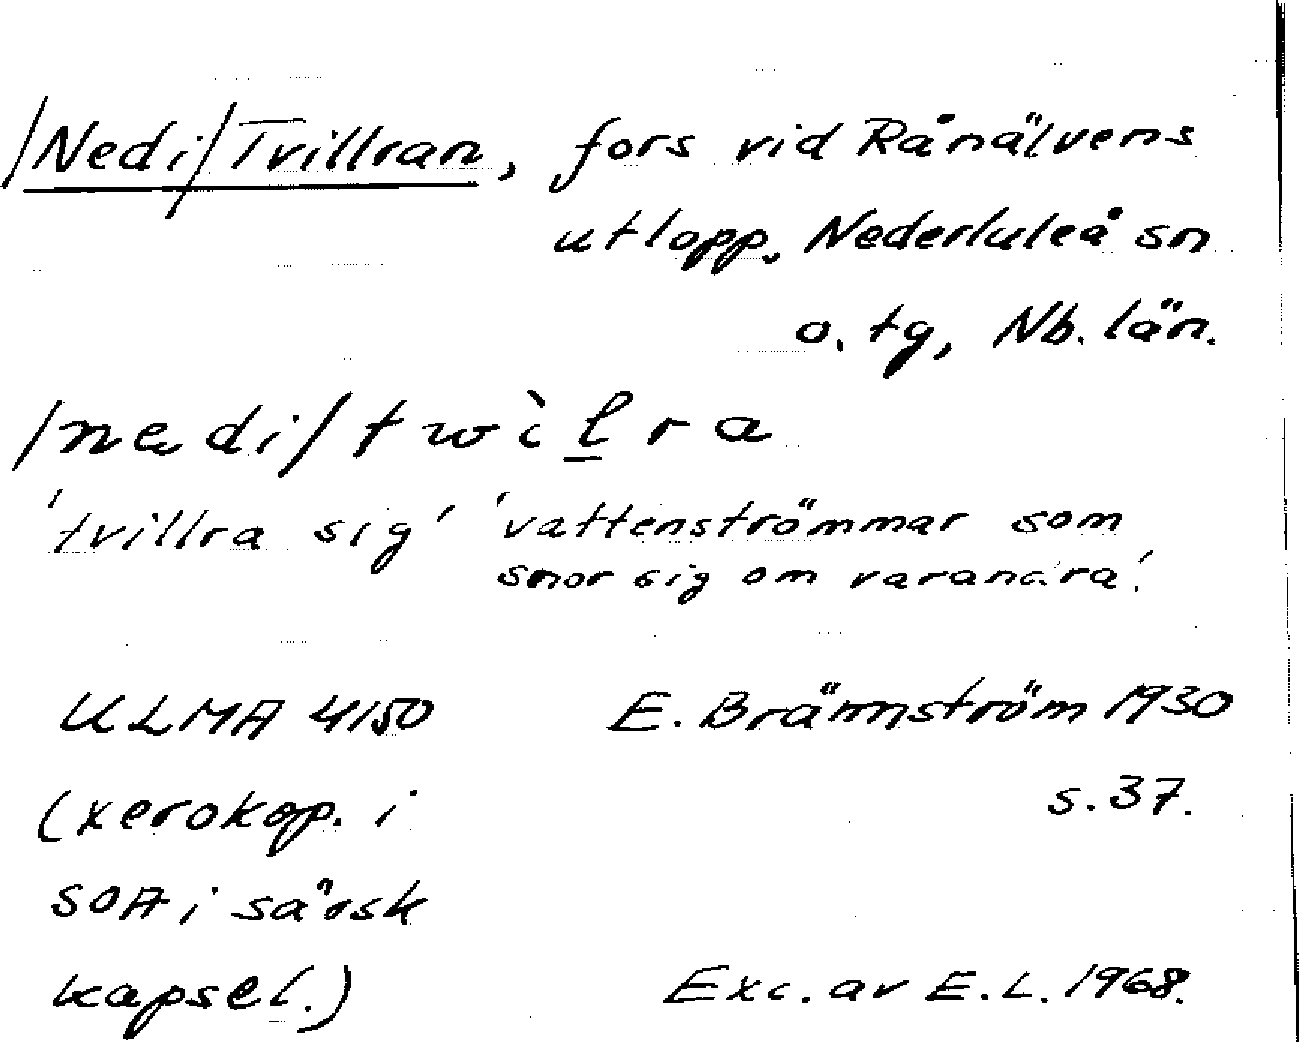 /Nedi/Tvillran, fors vid Rånälvens
utlopp, Nederluleå sn
o. tg, Nb. län.
/nedi/twìl̲ra
'tvillra sig' 'vattenströmmar som
snor sig om varandra'.
ULMA 4150 E. Brännström 1930
(xerokop. i s. 37.
SOA i särsk
kapsel.) Exc. av E. L. 1968.